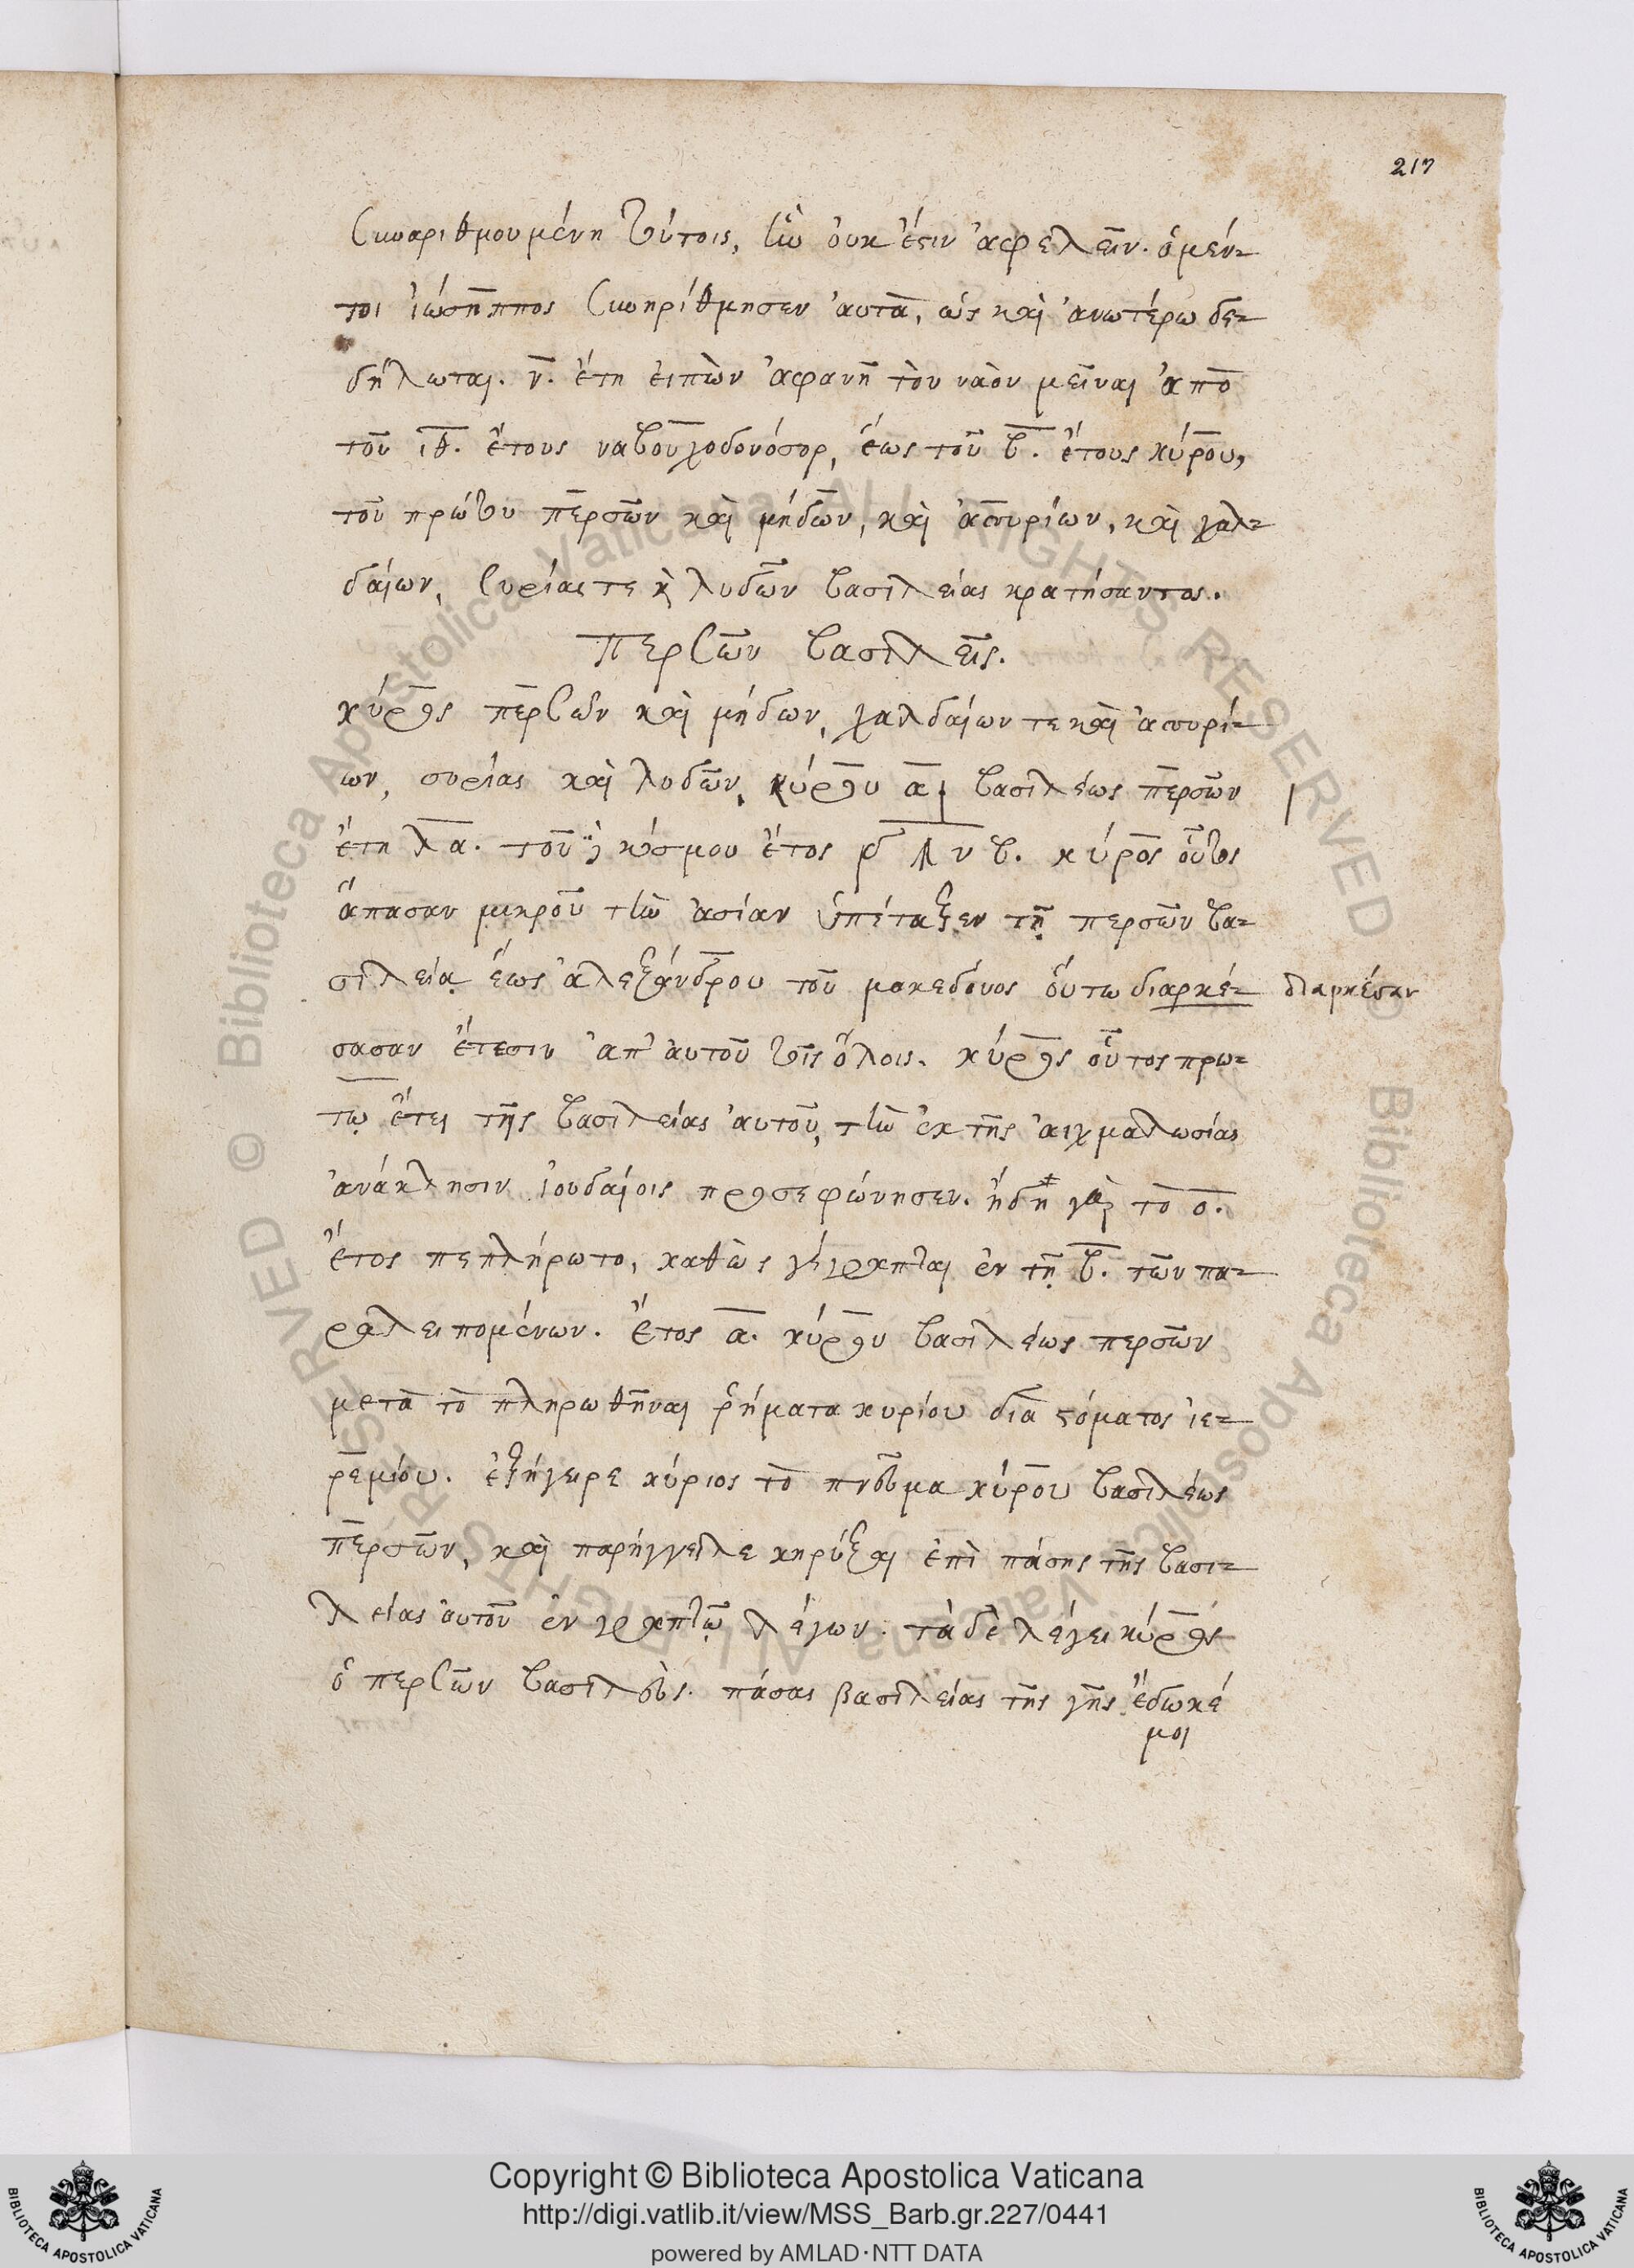 217
συναριθμουμένη τούτοις, ἣν οὐκ ἔστιν ἀφελεῖν. ὁ μέν-
τοι ἰώσηππος συνηρίθμησεν αὐτὰ, ὡς καὶ ἀνωτέρω δε-
δήλωται. ν. ἔτη εἰπὼν ἀφανῆ τὸν ναὸν μεῖναι ἀπὸ
τοῦ ιθ. ἔτους ναβουχοδονόσορ, ἕως τοῦ β. ἔτους κύρου,
τοῦ πρώτου περσῶν καὶ μήδων, καὶ ἀσσυρίων, καὶ χαλ-
δαίων, συρίας τε καὶ λυδῶν βασιλείας κρατήσαντος.
Περσῶν βασιλεῖς.
κύρος περσῶν καὶ μήδων, χαλδαίων τε καὶ ἀσσυρί-
ων, συρίας καὶ λυδῶν, κύρου α βασιλέως περσῶν
ἔτη λα. τοῦ κόσμου ἔτος β. κύρος οὗτος
ἅπασαν μικροῦ τὴν ἀσίαν ὑπέταξεν τῇ περσῶν βα-
σιλείᾳ ἕως ἀλεξάνδρου τοῦ μακεδόνος οὕτω διαρκέ- διαρκέσαν
σασαν ἔτεσιν ἀπ' αὐτοῦ τοῖς ὅλοις. κύρος οὗτος πρώ-
τῳ ἔτει τῆς βασιλείας αὐτοῦ, τὴν ἐκ τῆς αἰχμαλωσίας
ἀνάκλησιν ἰουδαίοις προσεφώνησεν. ἤδη γὰρ τὸ ο.
ἔτος πεπλήρωτο, καθὼς γέγραπται ἐν τῇ β. τῶν πα-
ραλειπομένων. ἔτος α. κύρου βασιλέως περσῶν
μετὰ τὸ πληρωθῆναι ῥήματα κυρίου διὰ στόματος ἱε-
ρεμίου. ἐξήγειρε κύριος τὸ πνεῦμα κύρου βασιλέως
περσῶν, καὶ παρήγγειλε κηρύξαι ἐπὶ πάσης τῆς βασι-
λείας αὐτοῦ ἐν γραπτῷ λέγων. τάδε λέγει κύρος
ὁ περσῶν βασιλεὺς. πάσας βασιλείας τῆς γῆς ἔδωκέ
μοι
Copyright © Biblioteca Apostolica Vaticana
http://digi.vatlib.it/view/MSS_Barb.gr.227/0441
powered by AMLAD·NTT DATA
BIBLIOTECA APOSTOLICA VATICANA
BIBLIOTECA APOSTOLICA VATICANA